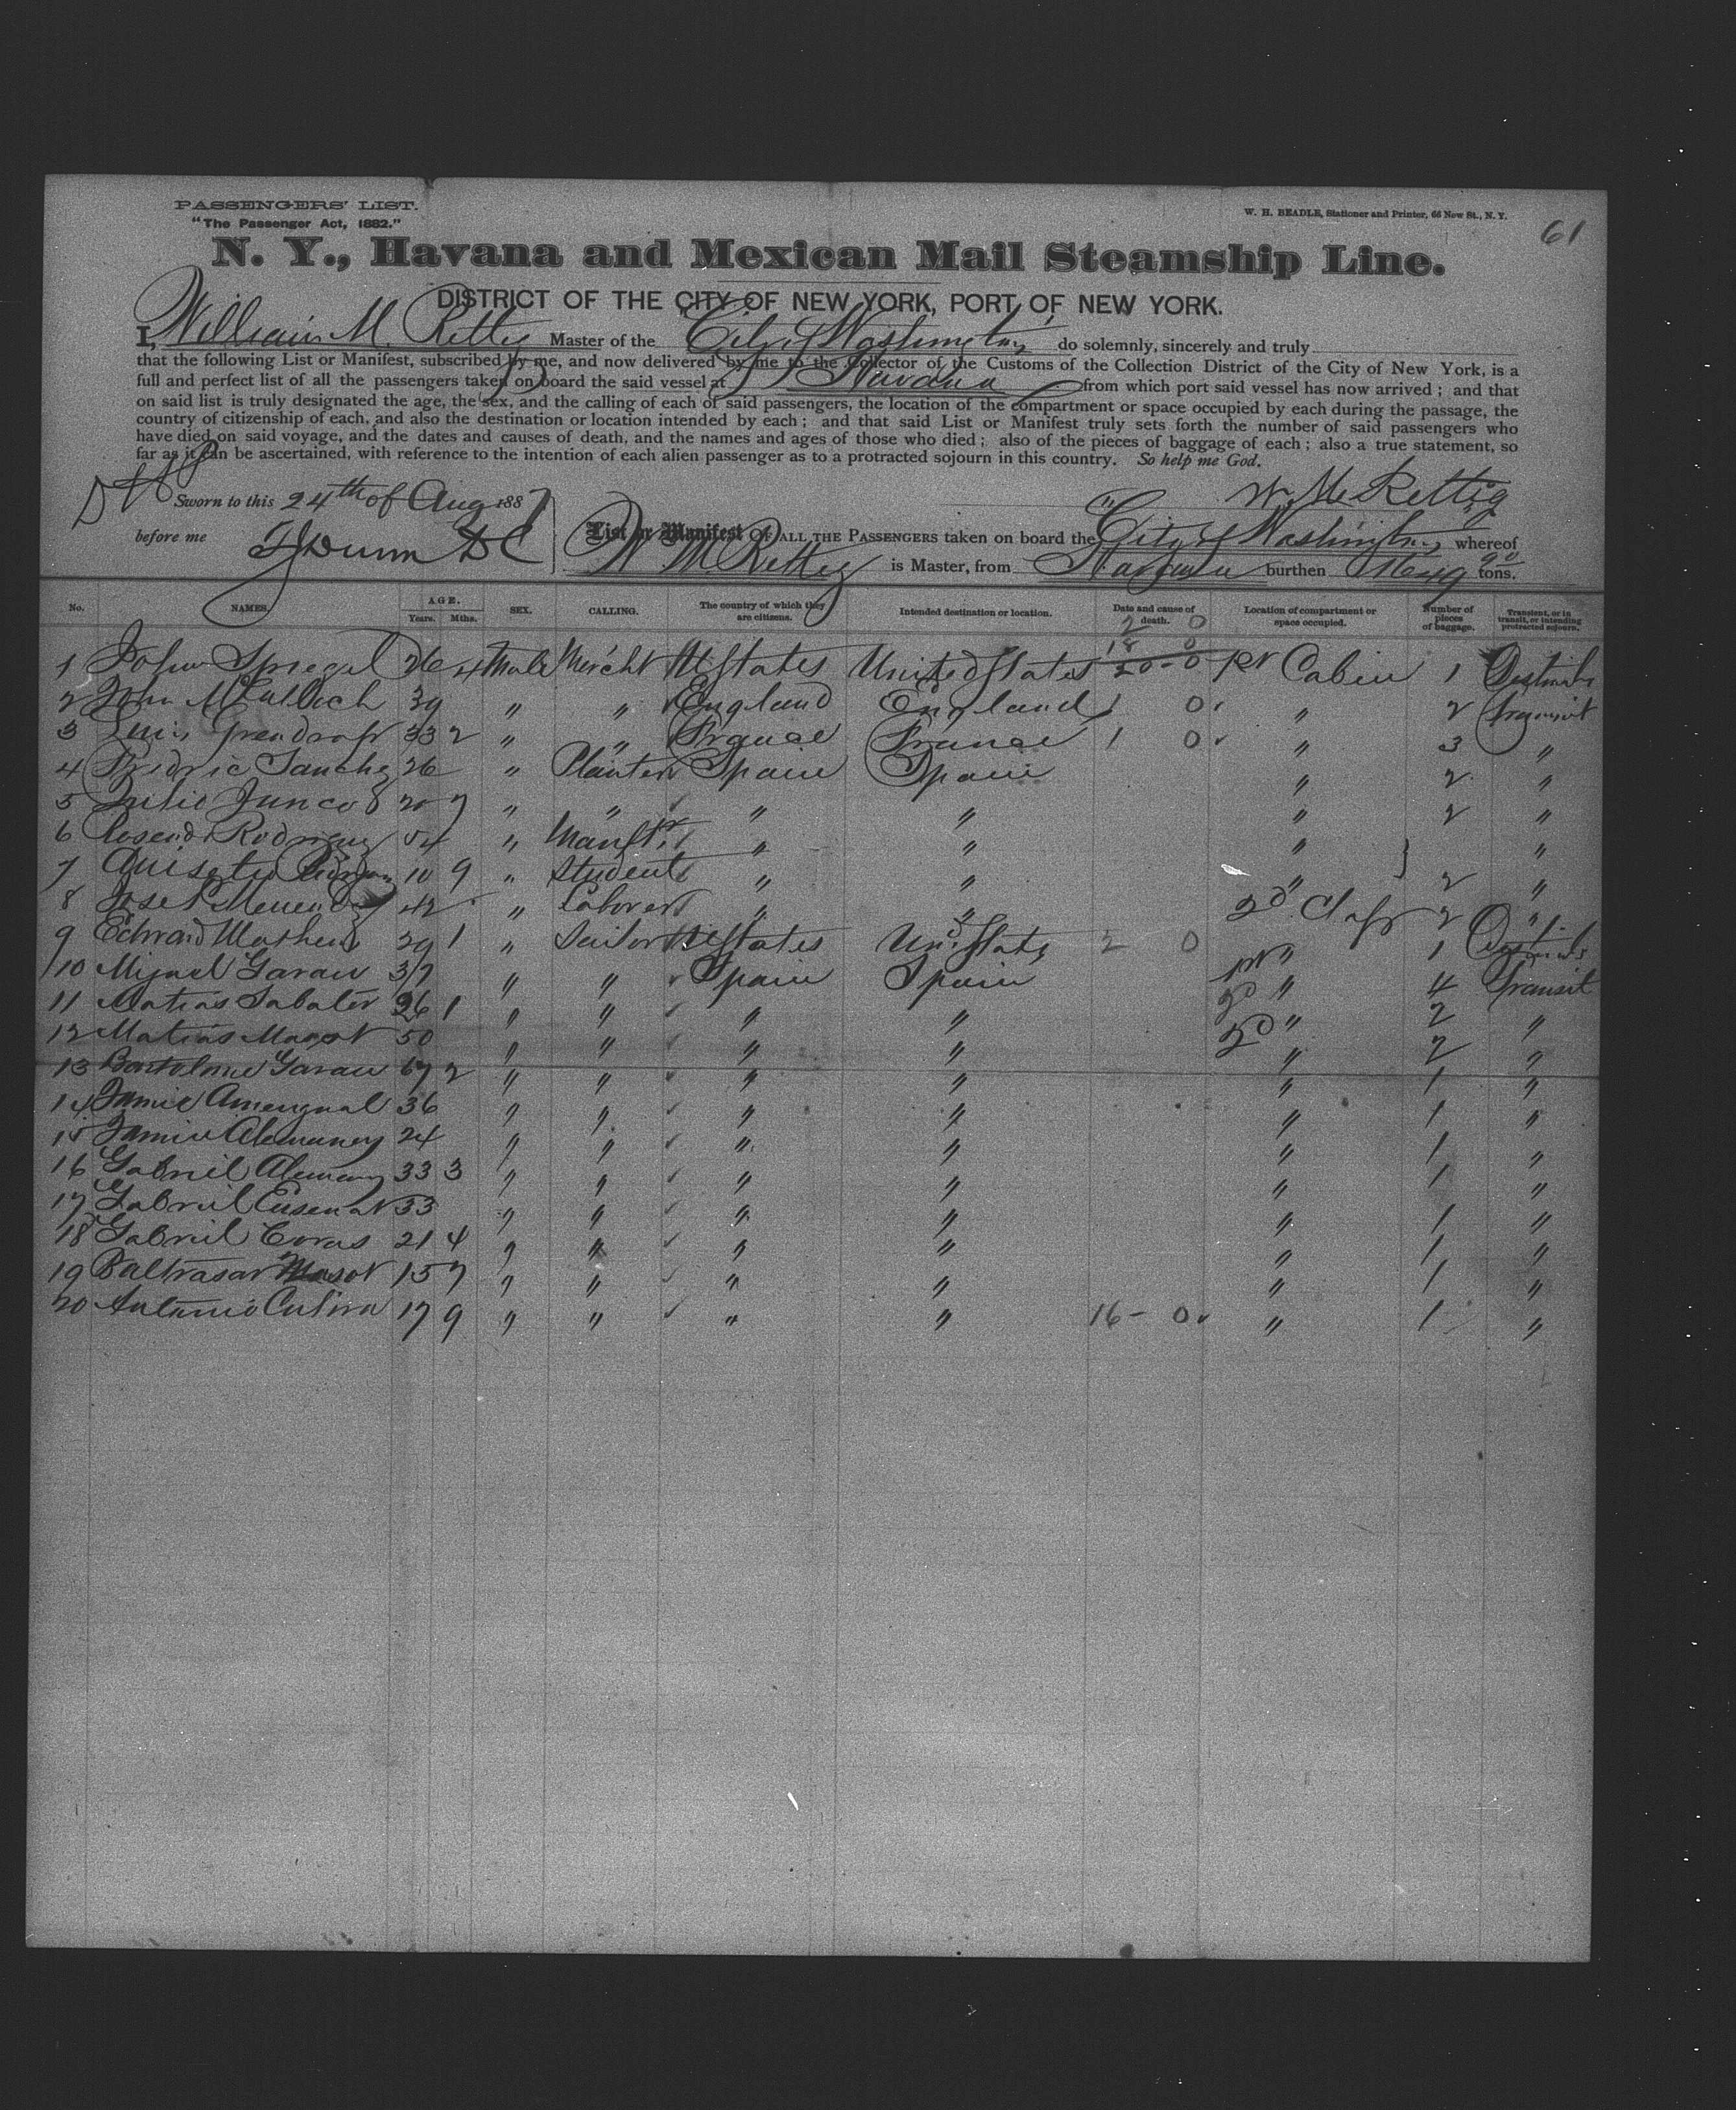 PASSENGERS' LIST.
"The Passenger Act, 1882."
W. H. BEADLE, Stationer and Printer, 66 New St., N. Y.
61
N. Y., Havana and Mexican Mail Steamship Line.
DISTRICT OF THE CITY OF NEW YORK, PORT OF NEW YORK.
I, William M. Rettig Master of the "City of Washington" do solemnly, sincerely and truly
that the following List or Manifest, subscribed by me, and now delivered by me to the Collector of the Customs of the Collection District of the City of New York, is a
full and perfect list of all the passengers taken on board the said vessel at Havana from which port said vessel has now arrived; and that
on said list is truly designated the age, the sex, and the calling of each of said passengers, the location of the compartment or space occupied by each during the passage, the
country of citizenship of each, and also the destination or location intended by each; and that said List or Manifest truly sets forth the number of said passengers who
have died on said voyage, and the dates and causes of death, and the names and ages of those who died; also of the pieces of baggage of each; also a true statement, so
far as it can be ascertained, with reference to the intention of each alien passenger as to a protracted sojourn in this country. So help me God.
Sworn to this 24th of Aug 1887 W. M. Rettig
before me List or Manifest OF ALL THE PASSENGERS taken on board the "City of Washington whereof
W M Rettig is Master, from Havana burthen 1649 90 tons.
No. NAMES. AGE. Years. Mths. SEX. CALLING. The country of which they are citizens. Intended destination or location. Date and cause of death. Location of compartment or space occupied. Number of pieces of baggage. Transient, or in transit, or intending protracted sojourn.
2 0
18 0
1 John Spregel 26 4 Male Mercht U States United States 20-0 1st Cabin 1
2 John 39 " " England England 1 0 " 2 Transit
3 Luis 33 2 " " France France 1 0 " 3 "
4 Fredric Sanchez 26 " Planter Spain Spain " 2 "
5 Julio Junco 20 7 " " " " " 2 "
6 Rosendo Rodriguez 54 " Manftr " " " "
7 10 9 " Student " " " 2 "
8 Jose Menendez 42 " Laborer " " 2d Class 2 "
9 Edward Mathews 29 1 " Sailor U States Un. States 2 0 1st " 1
10 Miguel Garau 37 " " Spain Spain 2d " 4 Transit
11 Matias Sabater 26 1 " " " " 2d " 2 "
12 Matias Masot 50 " " " " " 2 "
13 Bartolome Garau 67 2 " " " " " 1 "
14 Jamie Amengual 36 " " " " " 1 "
15 Jamie Alemany 24 " " " " " 1 "
16 Gabriel Alemany 33 3 " " " " " 1 "
17 Gabriel Ensenat 33 " " " " " 1 "
18 Gabriel Covas 21 4 " " " " " 1 "
19 Baltrasar Masot 15 7 " " " " " 1 "
20 Antonio 17 9 " " " " 16- 0 " 1 "